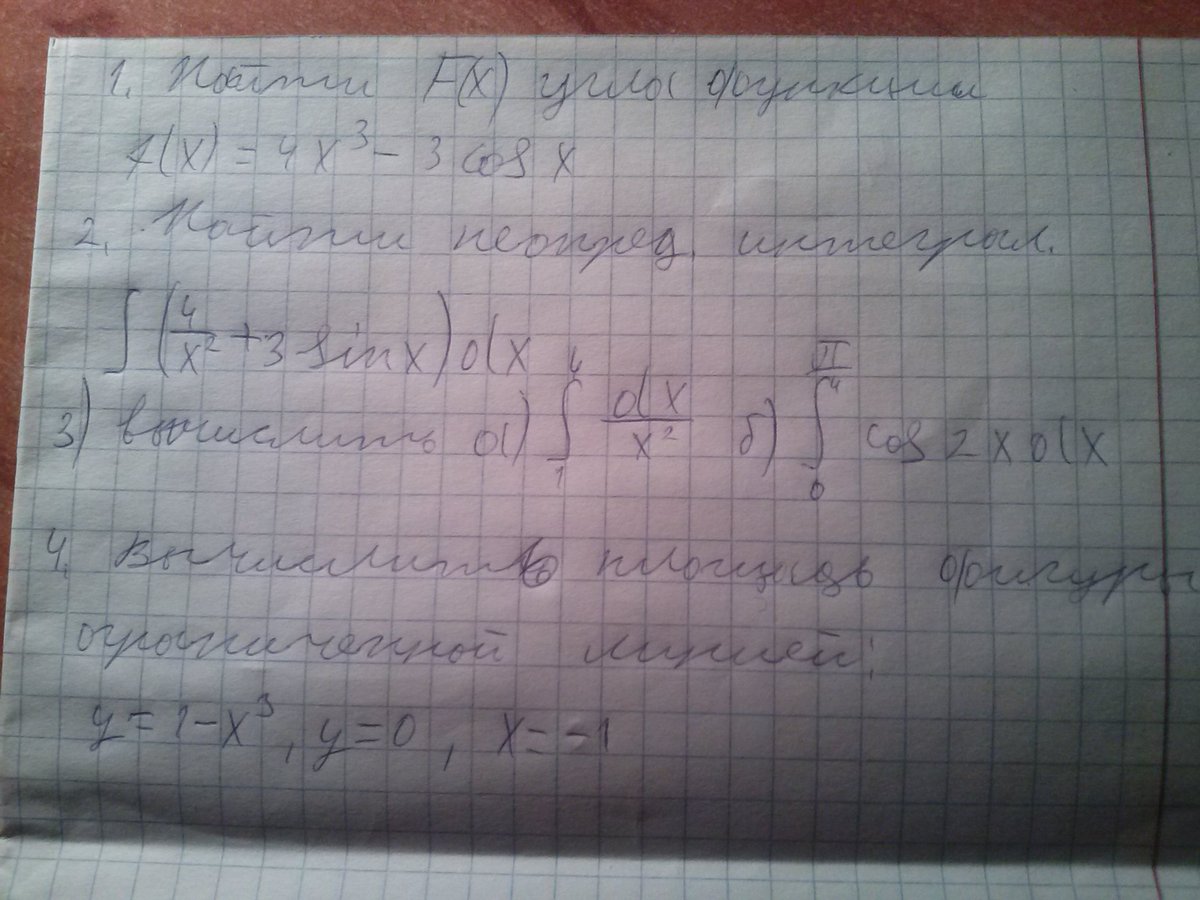 1. Найти F(x) угла функции
f(x) = 4x³ - 3 cos x
2. Найти неопред. интеграл.
∫ (4/x² + 3 sin x) dx
3) вычислить а) ∫₁⁴ dx/x² б) ∫₀^(π/4) cos 2x dx
4. Вычислить площадь фигуры
ограниченной линией:
y = 1 - x³, y = 0, x = -1